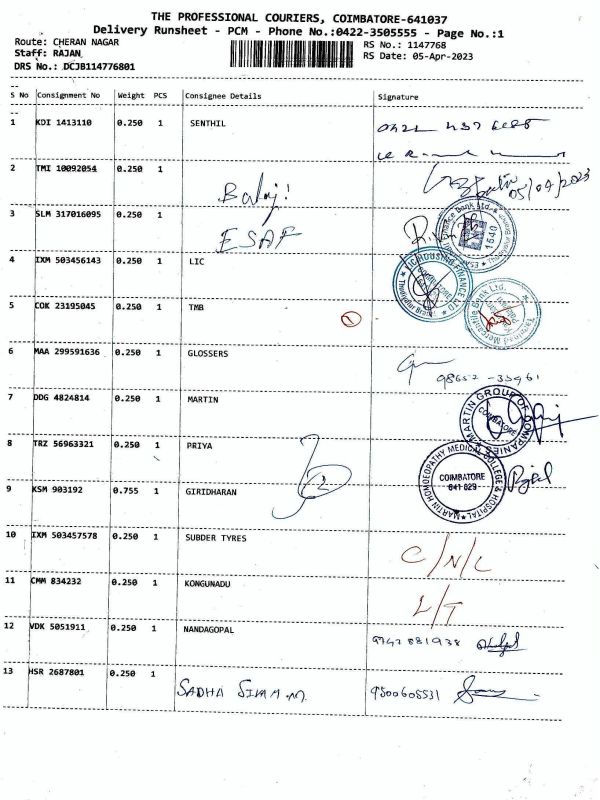 THE PROFESSIONAL COURIERS, COIMBATORE-641037
Delivery Runsheet - PCM - Phone No.:0422-3505555 - Page No.:1
Route: CHERAN NAGAR
Staff: RAJAN
DRS No.: DCJB114776801
RS No.: 1147768
RS Date: 05-Apr-2023
--
S No Consignment No Weight PCS Consignee Details Signature
--
1 KDI 1413110 0.250 1 SENTHIL
2 TMI 10092054 0.250 1 Balaji 05/04/2023
3 SLM 317016095 0.250 1 ESAF
4 IXM 503456143 0.250 1 LIC
LIC HOUSING FINANCE LTD
5 COK 23195045 0.250 1 TMB
Tamilnad Mercantile Bank Ltd.
6 MAA 299591636 0.250 1 GLOSSERS
7 DDG 4824814 0.250 1 MARTIN
MARTIN GROUP OF COMPANIES COIMBATORE
8 TRZ 56963321 0.250 1 PRIYA
MARTIN HOMOEOPATHY MEDICAL COLLEGE & HOSPITAL COIMBATORE 641 029
9 KSM 903192 0.755 1 GIRIDHARAN 2
10 IXM 503457578 0.250 1 SUBDER TYRES C/N/L
11 CMM 834232 0.250 1 KONGUNADU L/T
12 VDK 5051911 0.250 1 NANDAGOPAL 9747 881938
13 HSR 2687801 0.250 1 SADHA SIVAM 9500605531